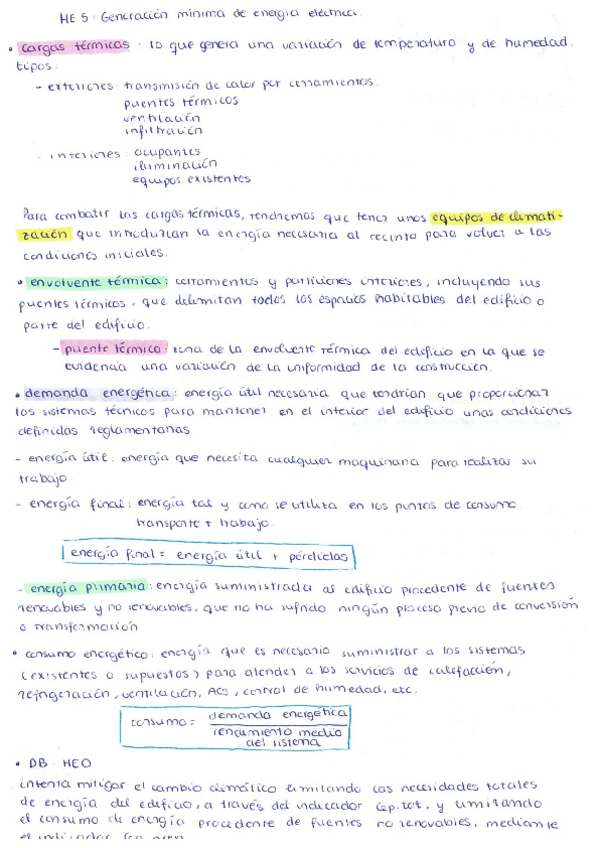 HE 5: Generación mínima de energía eléctrica.
• cargas térmicas: lo que genera una variación de temperatura y de humedad.
tipos:
- exteriores: transmisión de calor por cerramientos.
puentes térmicos
ventilación
infiltración
- interiores: ocupantes
iluminación
equipos existentes
Para combatir las cargas térmicas, tendremos que tener unos equipos de climati-
zación que introduzcan la energía necesaria al recinto para volver a las
condiciones iniciales.
• envolvente térmica: cerramientos y particiones interiores, incluyendo sus
puentes térmicos, que delimitan todos los espacios habitables del edificio o
parte del edificio.
- puente térmico: zona de la envolvente térmica del edificio en la que se
evidencia una variación de la uniformidad de la construcción.
• demanda energética: energía útil necesaria que tendrían que proporcionar
los sistemas técnicos para mantener en el interior del edificio unas condiciones
definidas reglamentarias
- energía útil: energía que necesita cualquier maquinaria para realizar su
trabajo
- energía final: energía tal y como se utiliza en los puntos de consumo.
transporte + trabajo
energía final = energía útil + pérdidas
- energía primaria: energía suministrada al edificio procedente de fuentes
renovables y no renovables, que no ha sufrido ningún proceso previo de conversión
o transformación
• consumo energético: energía que es necesario suministrar a los sistemas
(existentes o supuestos) para atender a los servicios de calefacción,
refrigeración, ventilación, ACS, control de humedad, etc.
consumo = demanda energética
rendimiento medio
del sistema
• DB-HE0
intenta mitigar el cambio climático limitando las necesidades totales
de energía del edificio, a través del indicador Cep,tot, y limitando
el consumo de energía procedente de fuentes no renovables, mediante
el indicador